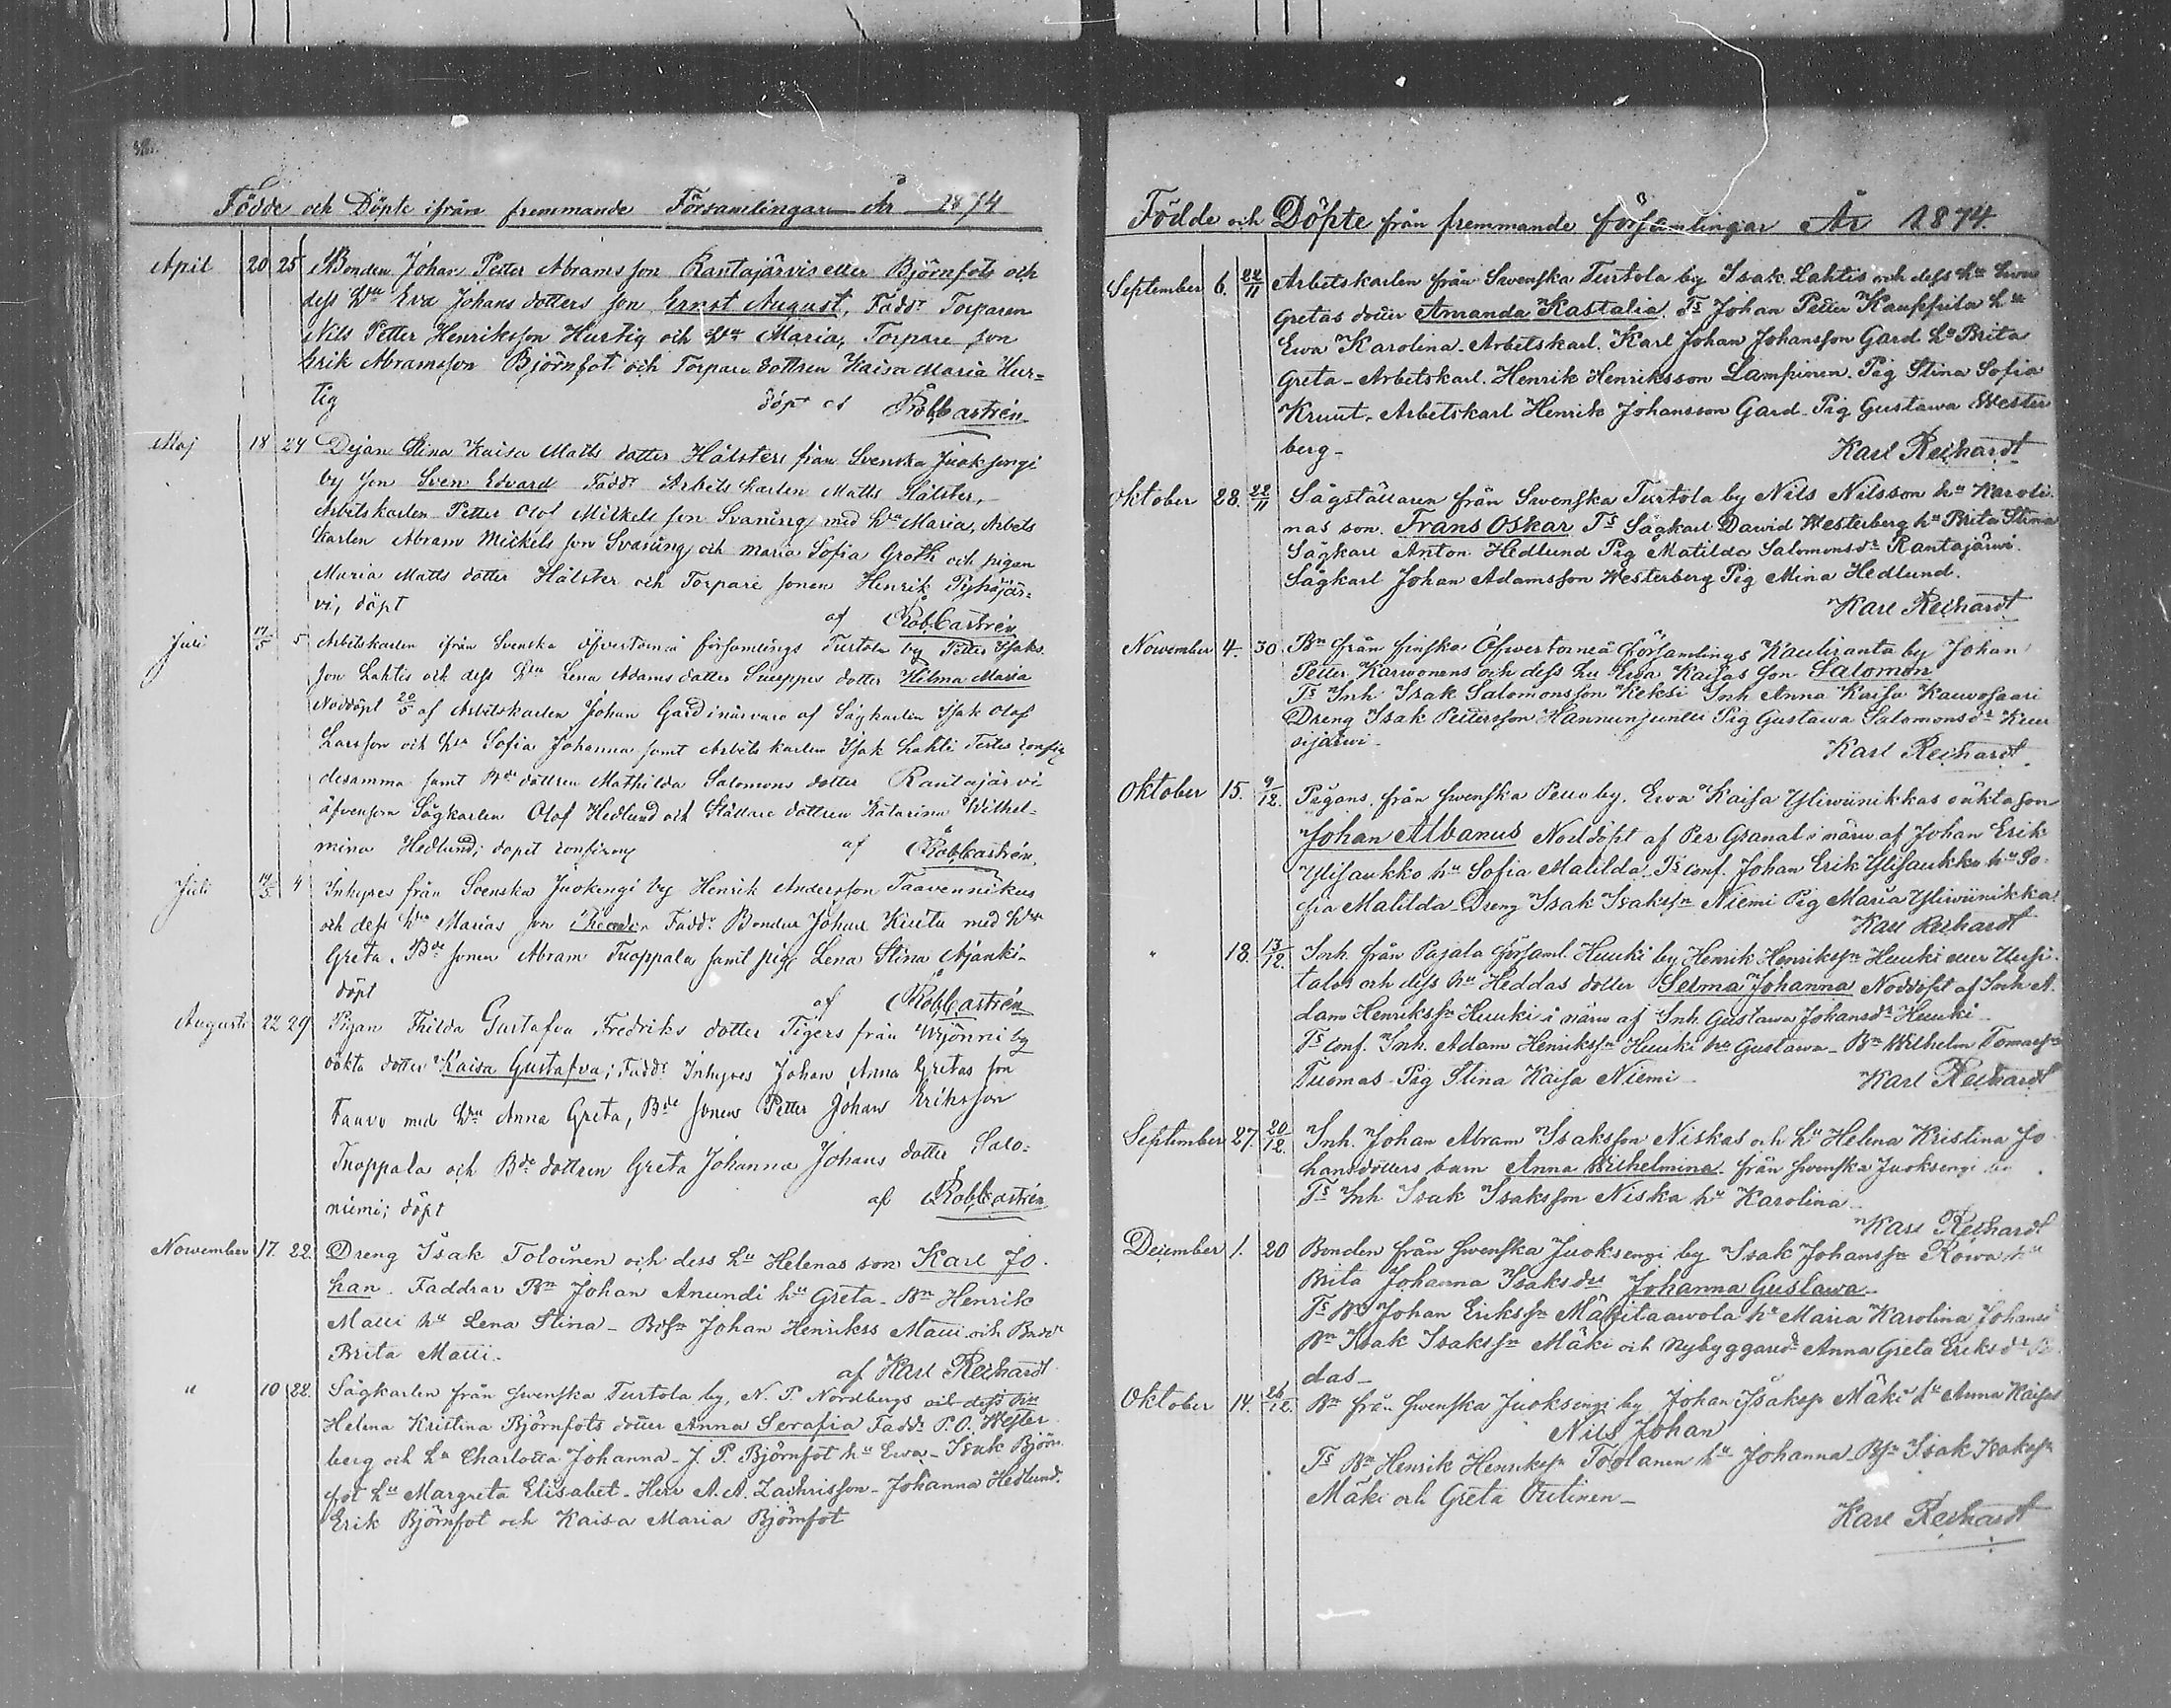 Födde och Döpte ifrån fremmande Församlingar År 1874
April 20 25 Bonden Johan Petter Abramsson Rantajärvis eller Björnfots och
dess Hu Eva Johans dotters son Ernst August, Faddr Torparen
Nils Petter Henriksson Hurtig och Hu Maria, Torpare son
Erik Abramsson Björnfot och Torpare dottren Kaisa Maria Hur=
tig döpt af Rob. Castrén
Maj 18 24 Pigan Stina Kaisa Matts dotter Hälsters från Svenska Juoksengi
by son Sven Edvard Faddr Arbets karlen Matts Hälster,
Arbetskarlen Petter Olof Mickels son Svanung med Hu Maria, Arbets
karlen Abram Mickels son Svanung och Maria Sofia Groth och pigan
Maria Matts dotter Hälster och Torpare sonen Henrik Pyhäjär=
vi, döpt af Rob. Castrén
Juli 17/5 5 Arbetskarlen ifrån Svenska öfvertorneå församlings Turtola by Petter Isaks
son Lahtis och dess Hu Lena Adams dotter dotter Hilma Maria
Nöddöpt 20/5 af Arbetskarlen Johan Gard i närvaro af Sågkarlen Isak Olof
Larsson och Hu Sofia Johanna samt Arbets karlen Isak Lahti Testes
desamma samt Bde dottren Mathilda Salomons dotter Rantajärvi
äfvensom Sågkarlen Olof Hedlund och Ställare dottren Katarina Wilhel=
mina Hedlund; döpet af Rob. Castrén
Juli 14/5 4 Inhyses från Svenska Juoksengi by Henrik Andersson Taavenníkus
och dess Hu Marias son Faddr Bonden Johan med Hu
Greta, Bde sonen Abram Tuoppala samt pig. Lena Stina Ajanki
döpt af Rob. Castrén
Augusti 22 29 Pigan Thilda Gustafva Fredriks dotter Tigers från by
oäkta dotter Kaisa Gustafva; Faddr Inhyses Johan Anna Gretas son
Taavo med Hu Anna Greta, Bde sonen Petter Johan Eriksson
Tuoppala och Bde dottren Greta Johanna Johans dotter Salo=
niemi; döpt af Rob. Castrén
November 17. 22. Dreng Isak Toloinen och dess hu Helenas son Karl Jo-
han. Faddrar Bn Johan Anundi hu Greta. Bn Henrik
Matti hu Lena Stina - Bdsn Johan Henrikss Matti och
Brita Matti. af Karl Reihardt
" 10 22. Sågkarlen från svenska Turtola by, N. P. Nordbergs och dess hu
Helena Kristina Björnfots dotter Anna Serafia Faddr P.O. Wester
berg och hu Charlotta Johanna - J. P. Björnfot hu Ewa - Isak Björn
fot hu Margreta Elisabet - Herr A. A. Zachrisson - Johanna Hedlund.
Erik Björnfot och Kaisa Maria Björnfot
Födde och Döpte från fremmande församlingar År 1874.
September 6. 22/11 Arbetskarlen från Swenska Turtola by Isak Lahtis och dess hu
Gretas dotter Amanda Kastalia. Ts Johan Petter hu
Ewa Karolina - Arbetskarl. Karl Johan Johansson Gard hu Brita
Greta - Arbetskarl. Henrik Henriksson Lampinen. Pig Stina Sofia
Kruut. Arbetskarl Henrik Johansson Gard - Pig Gustawa Wester
berg - Karl Reihardt
Oktober 28. 22/11 Sågställaren från Swenska Turtola by Nils Nilsson hu Karoli.
nas son. Frans Oskar Ts Sågkarl Dawid Westerberg hu Brita Stina
Sågkarl Anton Hedlund Pig Matilda Salomonsdr Rantajärwi.
Sågkarl Johan Adamsson Westerberg Pig Mina Hedlund.
Karl Reihardt
November 4. 30. Bn från finska Öfwertorneå församlings Kauliranta by Johan
Petter Karwonens och dess hu Ewa Kaisas son Salomon
Ts Inh Isak Salomonsson Keksi Inh Anna Kaisa Kauwosaari
Dreng Isak Pettersson Hannunjuntti Pig Gustawa Salomonsdr Kuer
oijärwi - Karl Reihardt
Oktober 15. 9/12. Pigans från swenska Pello by, Ewa Kaisa Yliwiinikkas oäkta son
Johan Albanus Nöddöpt af Per Granat i närw af Johan Erik
Ylisaukko hu Sofia Matilda. Ts conf. Johan Erik Ylisaukko hu So-
fia Matilda - Dreng Isak Isakssn Niemi Pig Maria Yliwiinikka.
Karl Reihardt
" 18. 13/12. Inh. från Pajala församl. Huuki by Henrik Henrikssn Huuki eller Uusi-
talos och dess hu Heddas dotter Selma Johanna Nöddöpt af Inh A-
dam Henrikssn Huuki i närw af Inh Gustawa Johansdr Huuki -
Ts conf. Inh. Adam Henrikssn Huuki hu Gustawa - Bn Wilhelm Tomassn
Tuomas - Pig Stina Kaisa Niemi - Karl Reihardt
September 27. 20/12. Inh. Johan Abram Isaksson Niskas och hu Helena Kristina Jo
hansdotters barn Anna Wilhelmina från swenska Juoksengi by
Ts Inh Isak Isaksson Niska hu Karolina -
Karl Reihardt
December 1. 20 Bonden från swenska Juoksengi by Isak Johanssn Rowa hu
Brita Johanna Isaksdr Johanna Gustawa -
Ts Bn Johan Erikssn Mäkitaawola hu Maria Karolina Johans
Bn Isak Isakssn Mäki och Nybyggaredr Anna Greta Eriksdr
das -
Oktober 14. 26/12. Bn från swenska Juoksengi by Johan Isakssn Mäki hu Anna Kaisas
Nils Johan
Ts Bn Henrik Henrikssn Toolanen hu Johanna - Bsn Isak Isakssn
Mäki och Greta Outinen -
Karl Reihardt